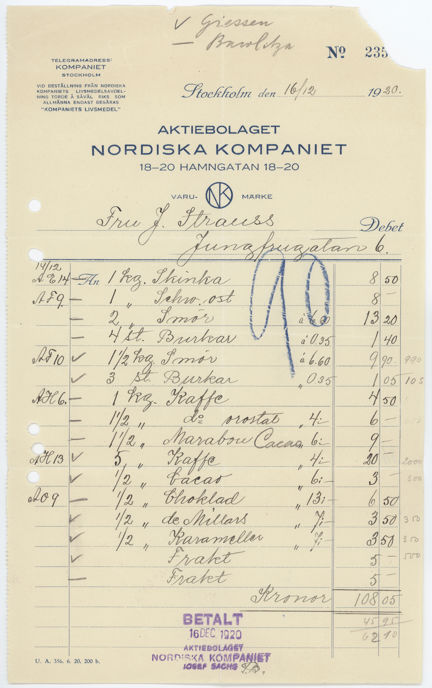 v Giessen
— Barolitza
No 235
TELEGRAMADRESS
KOMPANIET
STOCKHOLM
VID BESTÄLLNING FRÅN NORDISKA
KOMPANIETS LIVSMEDELSAVDEL-
NING TORDE Å SÅVÄL RIKS SOM
ALLMÄNNA ENDAST BEGÄRAS
"KOMPANIETS LIVSMEDEL"
Stockholm den 16/12 1920.
AKTIEBOLAGET
NORDISKA KOMPANIET
18–20 HAMNGATAN 18–20
VARU- NK MÄRKE
Fru J. Strauss Debet
Jungfrugatan 6.
90
14/12
AE14 — An 1 kg. Skinka 8 50
AF9. — 1 „ Schw. ost 8 –
— 2 „ Smör à 6.60 13 20
— 4 st. Burkar à 0.35 1 40
AF10 ✓ 1 1/2 kg Smör à 6.60 9 90 990
✓ 3 st. Burkar „ 0.35 1 05 105
AH6. — 1 kg. Kaffe 4 50
— 1 1/2 „ do orostat „ 4:- 6 –
— 1 1/2 „ Marabou Cacao „ 6:- 9 –
AH13 ✓ 5 „ Kaffe „ 4:- 20 – 2000
✓ 1/2 „ Cacao „ 6:- 3 – 300
AO9 — 1/2 „ Choklad „ 13:- 6 50
✓ 1/2 „ de Millars „ 7:- 3 50 350
✓ 1/2 „ Karameller „ 7:- 3 50 350
✓ Frakt 5 – 500
— Frakt 5 –
Kronor 108 05
45 95
62 10
BETALT
16 DEC 1920
AKTIEBOLAGET
NORDISKA KOMPANIET
JOSEF SACHS
U. A. 356. 6. 20. 200 b.